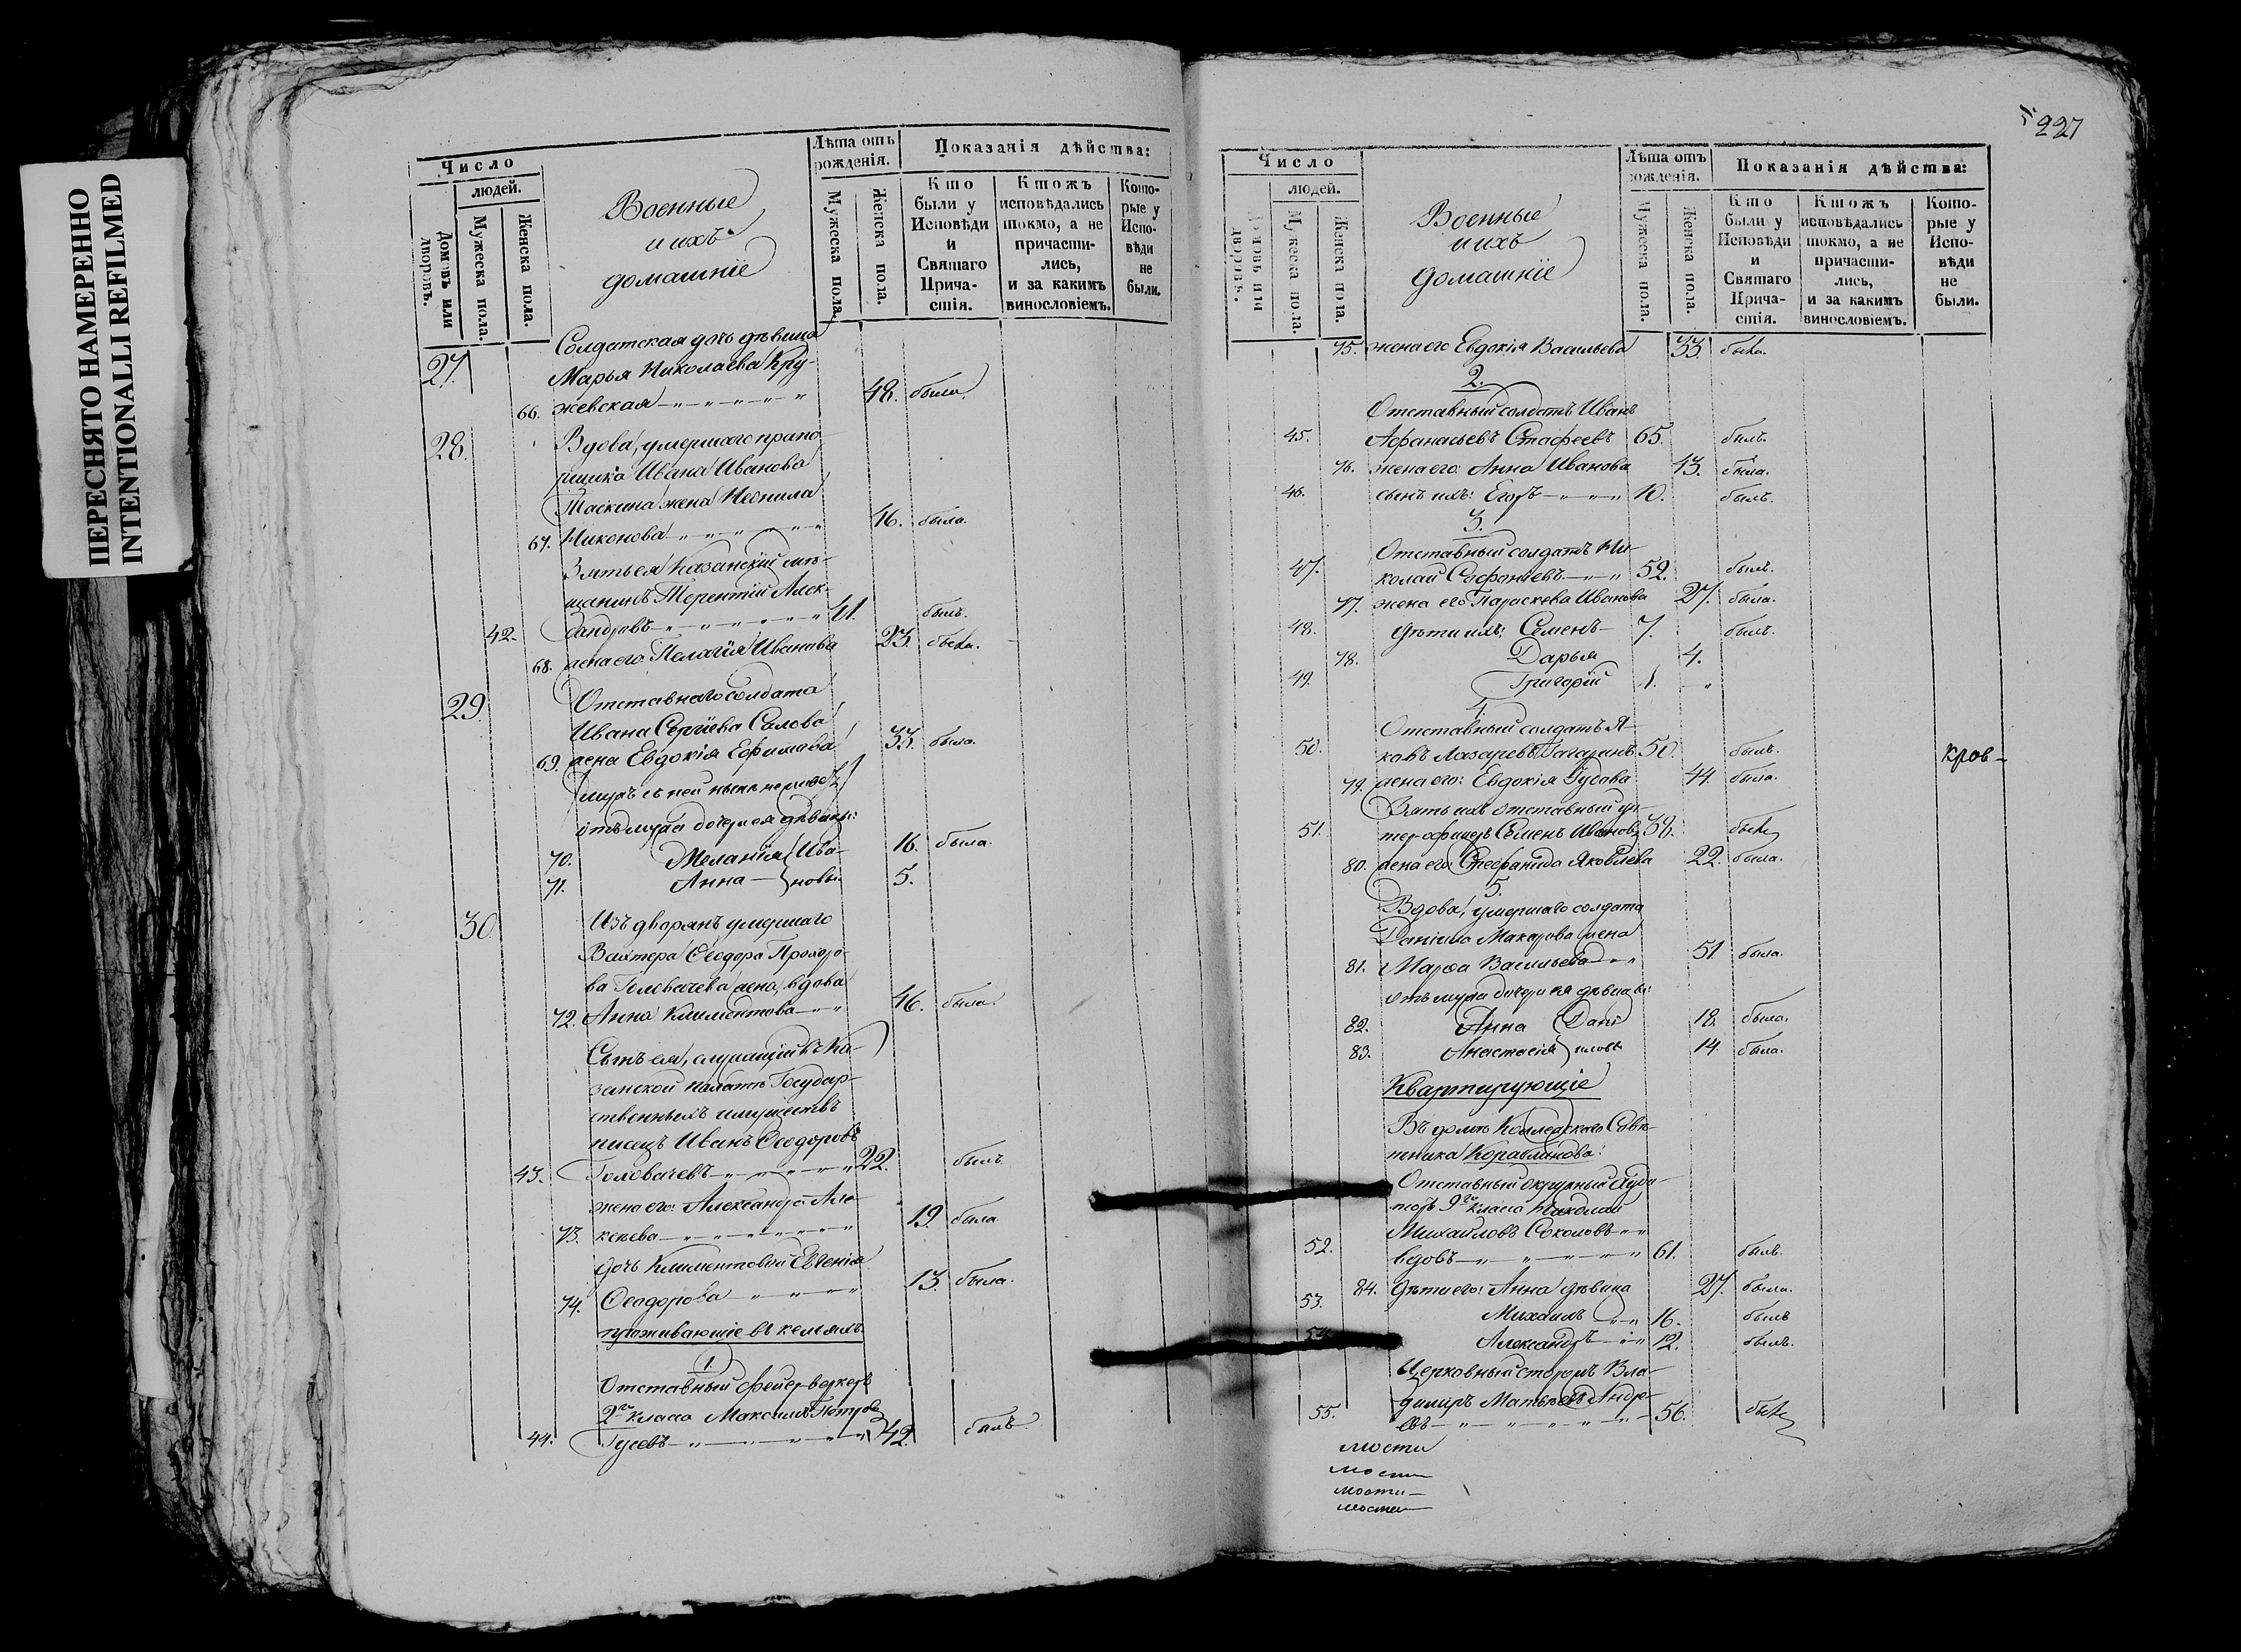 ПЕРЕСНЯТО НАМЕРЕННО
INTENTIONALLI REFILMED
Число
людей.
Домовъ или дворовъ.
Мужеска пола.
Женска пола.
Военные
и ихъ
домашніе
Лѣта отъ рожденія.
Мужеска пола.
Женска пола.
Показанія дѣйства:
Кто были у Исповѣди и Святаго Причастія.
Ктожъ исповѣдались токмо, а не причастились, и за какимъ винословіемъ.
Которые у Исповѣди не были.
27. Солдатская дочь дѣвица
Марья Николаева Кру-
66. жевская 48. была
28. Вдова, умершаго прапо-
рщика Ивана Иванова
Таскина жена Неонила
67. Никонова 46. была.
Зять ея Казанскій мѣ-
щанинъ Терентій Алек-
42. сандровъ 41. былъ.
68. жена его Пелагія Иванова 23. была.
29. Отставнаго солдата
Ивана Сергіева Сѣлова
69. жена Евдокія Ефимова 33. была.
мужъ съ ней нынѣ не живетъ
отъ мужа дочери ея дѣвицы:
70. Меланія Ива- 16. была.
71. Анна новы 5.
30. Изъ дворянъ умершаго
Вахтера Ѳеодора Прохоро-
ва Головачева жена, вдова
72. Анна Климентова 46. была.
Сынъ ея, служащій въ Ка-
занской палатѣ Государ-
ственныхъ имуществъ
писецъ Иванъ Ѳеодоровъ
43. Головачевъ 22. былъ.
жена его: Александра Але-
73. ксѣева 19. была
дочь Климентовой Евгенія
74. Ѳеодорова 13. была.
проживающіе въ кельяхъ
1.
Отставный фейерверкеръ
2го класса Максимъ Петровъ
44. Гусевъ 42. былъ.
227
Число
людей.
Домовъ или дворовъ.
Мужеска пола.
Женска пола.
Военные
и ихъ
домашніе
Лѣта отъ рожденія.
Мужеска пола.
Женска пола.
Показанія дѣйства:
Кто были у Исповѣди и Святаго Причастія.
Ктожъ исповѣдались токмо, а не причастились, и за какимъ винословіемъ.
Которые у Исповѣди не были.
75. жена его Евдокія Васильева 33. была.
2.
Отставный солдатъ Иванъ
45. Афанасьевъ Стафеевъ 65. былъ.
76. жена его: Анна Иванова 43. была.
46. сынъ ихъ: Егоръ 10. былъ.
3.
Отставный солдатъ Ни-
47. колай Софоніевъ 52. былъ.
77. жена его Параскева Иванова 27. была.
48. дѣти ихъ: Семенъ 7. былъ.
78. Дарья 4.
49. Григорій 1. "
4.
Отставный солдатъ Я-
50. ковъ Лазаревъ Гагаринъ 50. былъ.
кров-
79. жена его: Евдокія Гурова 44. была.
Зять ихъ отставный ун-
51. тер-офицеръ Семенъ Ивановъ 38. былъ
80. жена его Стефанида Яковлева 22. была.
5.
Вдова, умершаго солдата
Даніила Макарова жена
81. Марѳа Васильева 51. была.
отъ мужа дочери ея дѣвицы:
82. Анна Дані- 18. была.
83. Анастасія иловы 14. была.
Квартирующіе
Въ домѣ Коллежскаго Совѣ-
тника Кораблинова:
Отставный окружный Ауди-
торъ 9го класса Николай
Михайловъ Соколовъ
52. вдовъ 61. былъ.
84. дѣти его: Анна дѣвица 27. была.
53. Михаилъ 16. былъ
54. Александръ 12. былъ.
Церковный сторожъ Вла-
димиръ Матвѣевъ Андре-
55. евъ 56. былъ
мости
мости
мости
мости